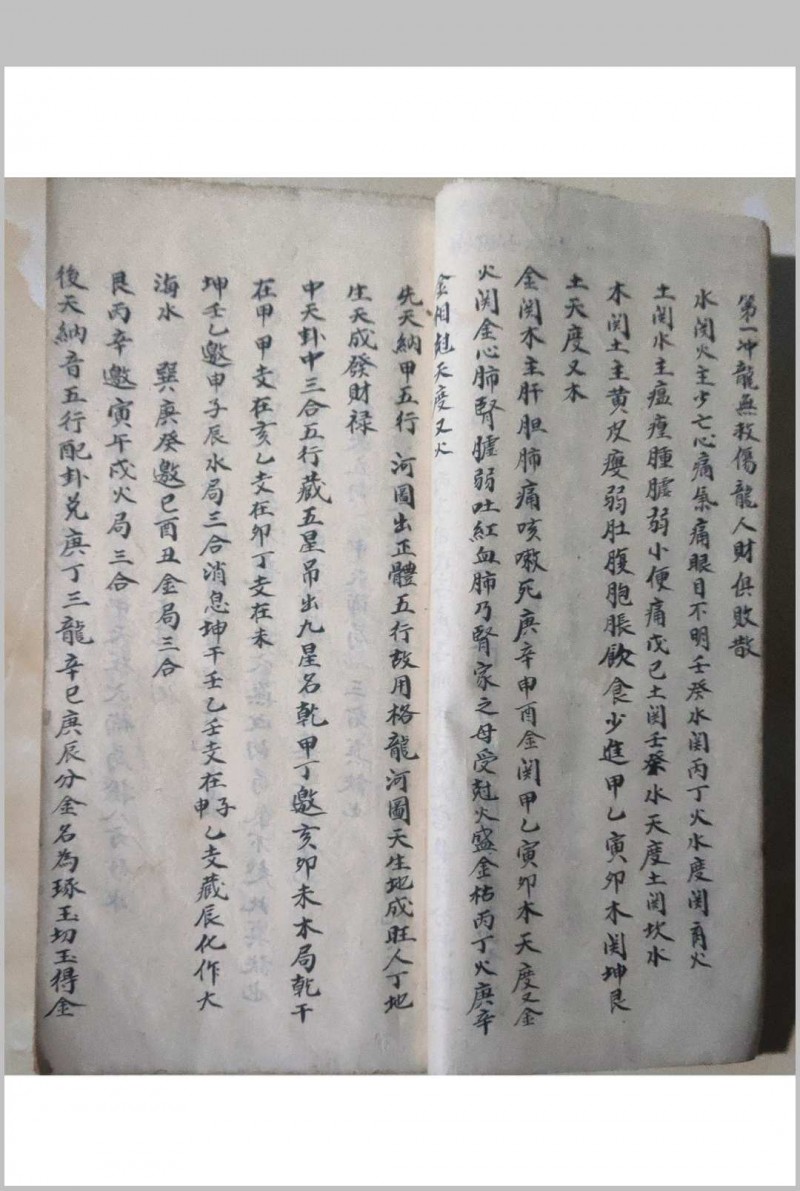 第一冲龍無救傷龍人財俱敗散
水関火主少亡心痛氣痛眼目不明壬癸水関丙丁火水度関离火
土関水主瘟㾏腫臌弱小便痛戊己土関壬癸水天度土関坎水
木関土主黄皮瘦弱肚腹胞脹飲食少進甲乙寅卯木関坤艮
土天度又木
金関木主肝胆肺痛咳嗽死庚辛申酉金関甲乙寅卯木天度又金
火関金心肺腎臌弱吐紅血肺乃腎家之母受尅火盛金枯丙丁火庚辛
金相尅天度又火
先天納甲五行 河圖出正體五行故用格龍河圖天生地成旺人丁地
生天成發財禄
中天卦中三合五行藏五星吊出九星名乾甲丁邀亥卯未木局乾干
在甲甲支在亥乙支在卯丁支在未
坤壬乙邀申子辰水局三合消息坤干壬乙壬支在申子乙支藏辰化作大
海水 巽庚癸邀巳酉丑金局三合
艮丙辛邀寅午戌火局三合
後天納音五行配卦兑庚丁三龍辛巳庚辰分金名為琢玉切玉得金